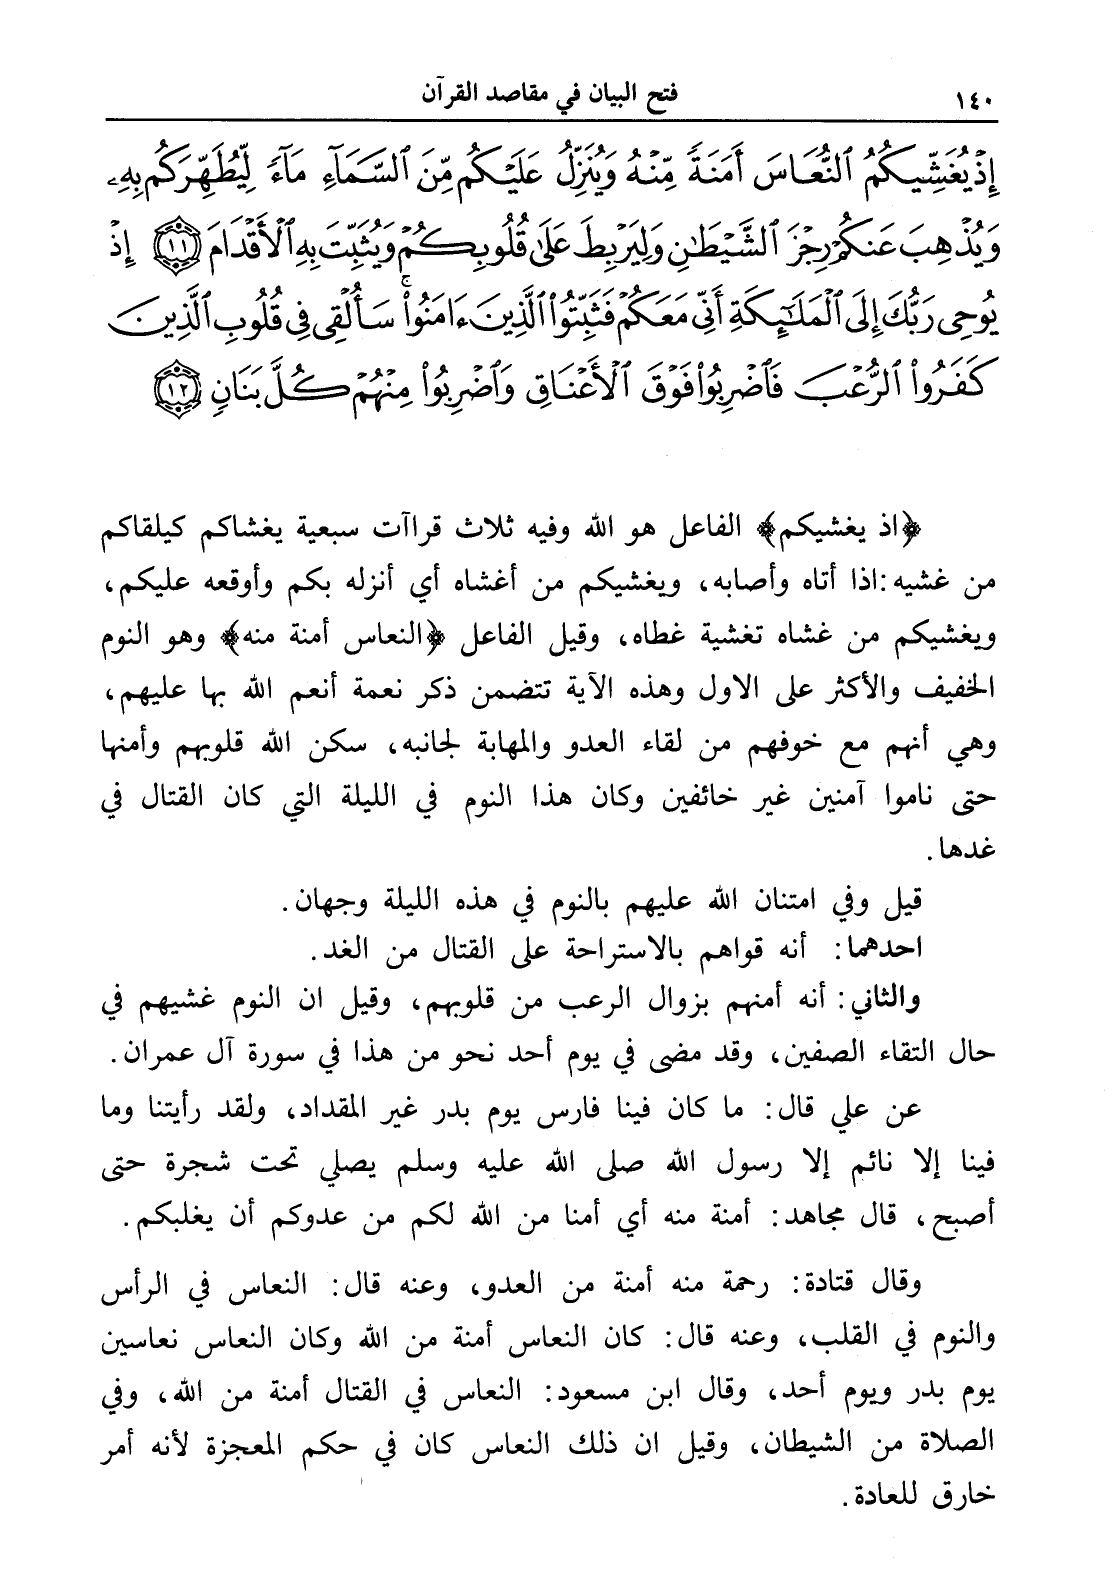 ١٤٠
فتح البيان في مقاصد القرآن
إِذْ يُغَشِّيكُمُ ٱلنُّعَاسَ أَمَنَةً مِّنْهُ وَيُنَزِّلُ عَلَيْكُم مِّنَ ٱلسَّمَآءِ مَآءً لِّيُطَهِّرَكُم بِهِۦ
وَيُذْهِبَ عَنكُمْ رِجْزَ ٱلشَّيْطَٰنِ وَلِيَرْبِطَ عَلَىٰ قُلُوبِكُمْ وَيُثَبِّتَ بِهِ ٱلْأَقْدَامَ ١١ إِذْ
يُوحِى رَبُّكَ إِلَى ٱلْمَلَٰٓئِكَةِ أَنِّى مَعَكُمْ فَثَبِّتُوا۟ ٱلَّذِينَ ءَامَنُوا۟ ۚ سَأُلْقِى فِى قُلُوبِ ٱلَّذِينَ
كَفَرُوا۟ ٱلرُّعْبَ فَٱضْرِبُوا۟ فَوْقَ ٱلْأَعْنَاقِ وَٱضْرِبُوا۟ مِنْهُمْ كُلَّ بَنَانٍ ١٢
﴿اذ يغشيكم﴾ الفاعل هو الله وفيه ثلاث قراآت سبعية يغشاكم كيلقاكم
من غشيه :اذا أتاه وأصابه، ويغشيكم من أغشاه أي أنزله بكم وأوقعه عليكم،
ويغشيكم من غشاه تغشية غطاه، وقيل الفاعل ﴿النعاس أمنة منه﴾ وهو النوم
الخفيف والأكثر على الاول وهذه الآية تتضمن ذكر نعمة أنعم الله بها عليهم،
وهي أنهم مع خوفهم من لقاء العدو والمهابة لجانبه، سكن الله قلوبهم وأمنها
حتى ناموا آمنين غير خائفين وكان هذا النوم في الليلة التي كان القتال في
غدها.
قيل وفي امتنان الله عليهم بالنوم في هذه الليلة وجهان.
احدهما: أنه قواهم بالاستراحة على القتال من الغد.
والثاني: أنه أمنهم بزوال الرعب من قلوبهم، وقيل ان النوم غشيهم في
حال التقاء الصفين، وقد مضى في يوم أحد نحو من هذا في سورة آل عمران.
عن علي قال: ما كان فينا فارس يوم بدر غير المقداد، ولقد رأيتنا وما
فينا إلا نائم إلا رسول الله صلى الله عليه وسلم يصلي تحت شجرة حتى
أصبح، قال مجاهد: أمنة منه أي أمنا من الله لكم من عدوكم أن يغلبكم.
وقال قتادة: رحمة منه أمنة من العدو، وعنه قال: النعاس في الرأس
والنوم في القلب، وعنه قال: كان النعاس أمنة من الله وكان النعاس نعاسين
يوم بدر ويوم أحد، وقال ابن مسعود: النعاس في القتال أمنة من الله، وفي
الصلاة من الشيطان، وقيل ان ذلك النعاس كان في حكم المعجزة لأنه أمر
خارق للعادة.